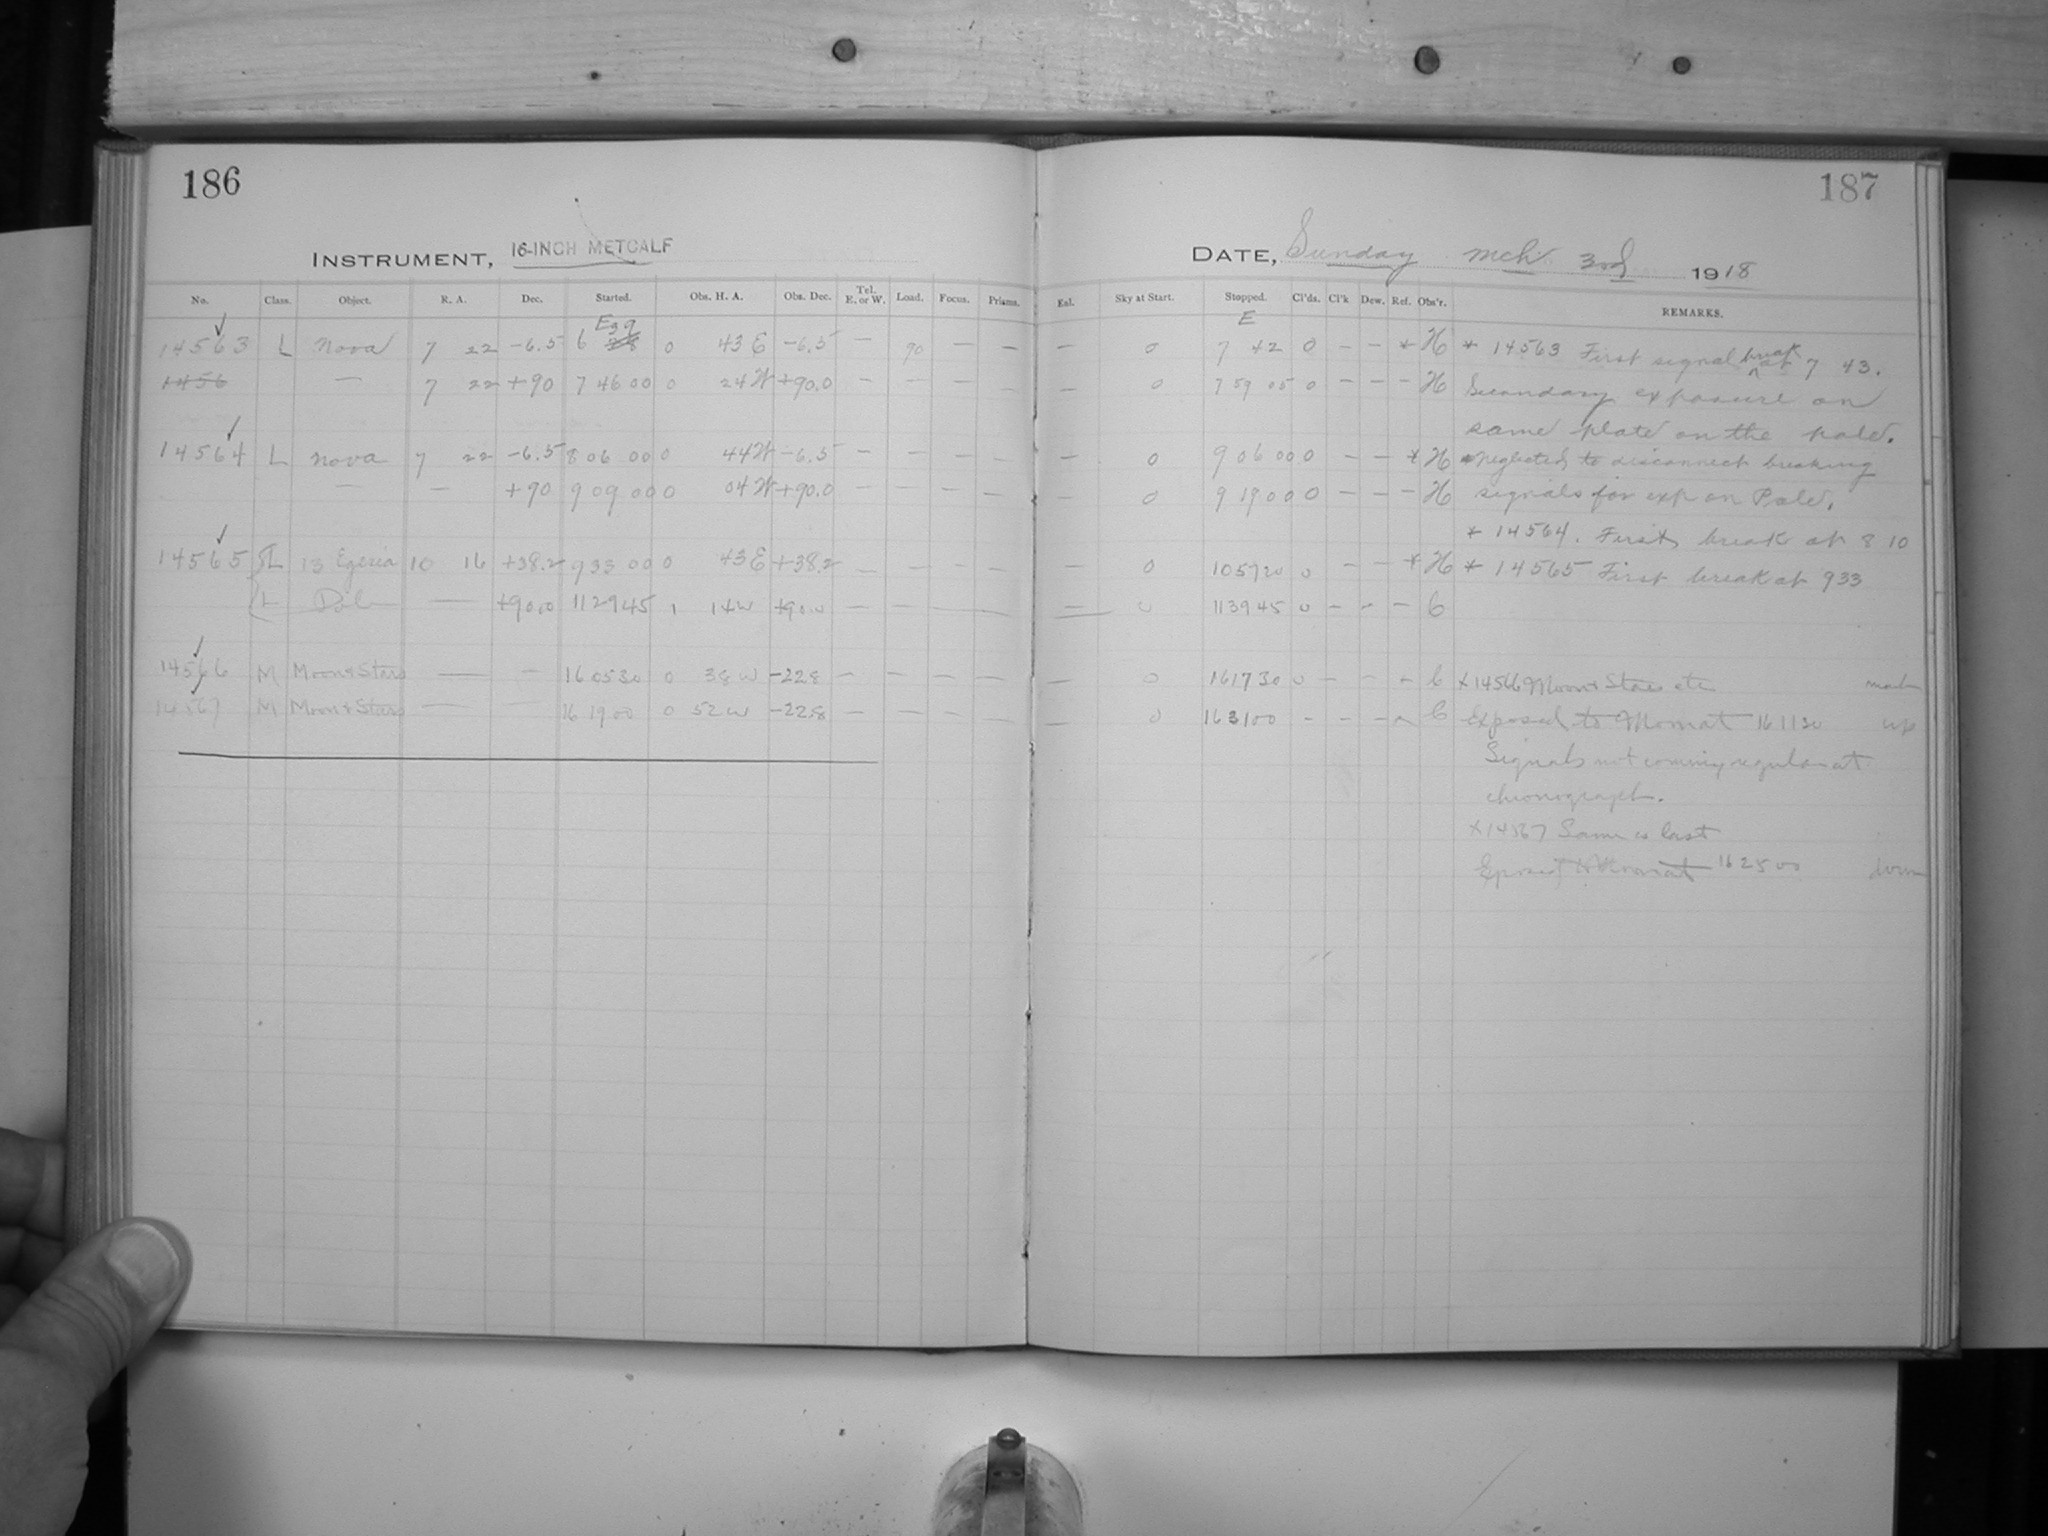 186
187
INSTRUMENT, 16-INCH METCALF
DATE, Sunday Mch 3rd 1918
No. Class. Object. R. A. Dec. Started. Obs. H. A. Obs. Dec. Tel. E. or W. Load. Focus. Prisms. Eal. Sky at Start. Stopped. Cl'ds. Cl'k Dew. Ref. Obs'r. REMARKS.
E 39 E
14563 L Nova 7 22 -6.5 6 0 43 E -6.5 — 90 — — — 0 7 42 0 — — * H * 14563 First signal break at 7 43.
1456 — 7 22 +90 7 46 00 0 24 W +90.0 — — — — — 0 7 59 05 0 — — — H Secondary exposure on
same plate on the pole.
14564 L Nova 7 22 -6.5 8 06 00 0 44 W -6.5 — — — — — 0 9 06 00 0 — — * H * neglected to disconnect breaking
— — +90 9 09 00 0 04 W +90.0 — — — — — 0 9 19 00 0 — — — H signals for exp on Pole.
* 14564. First break at 8 10
14565 L 13 Egeria 10 16 +38.2 9 33 00 0 43 E +38.2 — — — — — 0 10 57 20 0 — — * H * 14565 First break at 933
L Pole — +90.0 11 29 45 1 14 W +90.0 — — — — — 0 11 39 45 0 — — — C
14566 M Moon & Stars — — 16 05 30 0 38 W -22.8 — — — — — 0 16 17 30 0 — — — C x 14566 Moon & Stars etc
14567 M Moon & Stars — — 16 19 00 0 52 W -22.8 — — — — — 0 16 31 00 — — — — C Exposed to Moon at 16 11 30 up
Signals not coming regular at
chronograph.
x 14567 Same as last
Exposed to Moon at 16 25 00 down